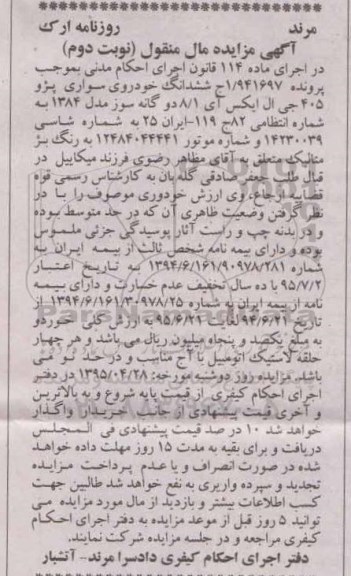 مرند روزنامه ارک
آگهی مزایده مال منقول (نوبت دوم)
در اجرای ماده ۱۱۴ قانون اجرای احکام مدنی بموجب
پرونده ۹۴۱۶۹۷/۱ج ششدانگ خودروی سواری پژو
۴۰۵ جی ال ایکس آی ۸/۱ دو گانه سوز مدل ۱۳۸۴ به
شماره انتظامی ۸۲ج ۱۱۹-ایران ۲۵ به شماره شاسی
۱۴۲۳۰۰۳۹ و شماره موتور ۱۲۴۸۴۰۴۴۴۴۱ به رنگ بژ
متالیک متعلق به آقای مظاهر رضوی فرزند میکاییل در
قبال طلب جعفر صادقی گله بان به کارشناس رسمی قوه
قضاییه ارجاع، وی ارزش خودروی موصوف را با در
نظر گرفتن وضعیت ظاهری آن که در حد متوسط بوده
و در بدنه چپ و راست آثار پوسیدگی جزئی ملموس
بوده و دارای بیمه نامه شخص ثالث از بیمه ایران به
شماره ۱۳۹۴/۶/۱۶۱/۹۰۹۷۸/۲۸۱ به تاریخ اعتبار
۹۵/۷/۲ با ده سال تخفیف عدم خسارت و دارای بیمه
نامه از بیمه ایران به شماره ۱۳۹۴/۶/۱۶۱/۳۰۹۷۸/۲۵ از
تاریخ ۹۴/۶/۲۱ لغایت ۹۵/۶/۲۱ به ارزش کلی خودرو
به مبلغ یکصد و پنجاه میلیون ریال می باشد و هر چهار
حلقه لاستیک اتومبیل با آج مناسب و در حد نو می
باشد. مزایده روز دوشنبه مورخه: ۱۳۹۵/۰۴/۲۸ در دفتر
اجرای احکام کیفری از قیمت پایه شروع و به بالاترین
و آخری قیمت پیشنهادی از جانب خریدار واگذار
خواهد شد ۱۰ در صد قیمت پیشنهادی فی المجلس
دریافت و برای بقیه به مدت ۱۵ روز مهلت داده خواهد
شده در صورت انصراف و یا عدم پرداخت مزایده
تجدید و سپرده واریزی به نفع خواهد شد طالبین جهت
کسب اطلاعات بیشتر و بازدید از مال مورد مزایده می
توانید ۵ روز قبل از موعد مزایده به دفتر اجرای احکام
کیفری مراجعه و در جلسه مزایده شرکت نمایند.
دفتر اجرای احکام کیفری دادسرا مرند- آتشبار